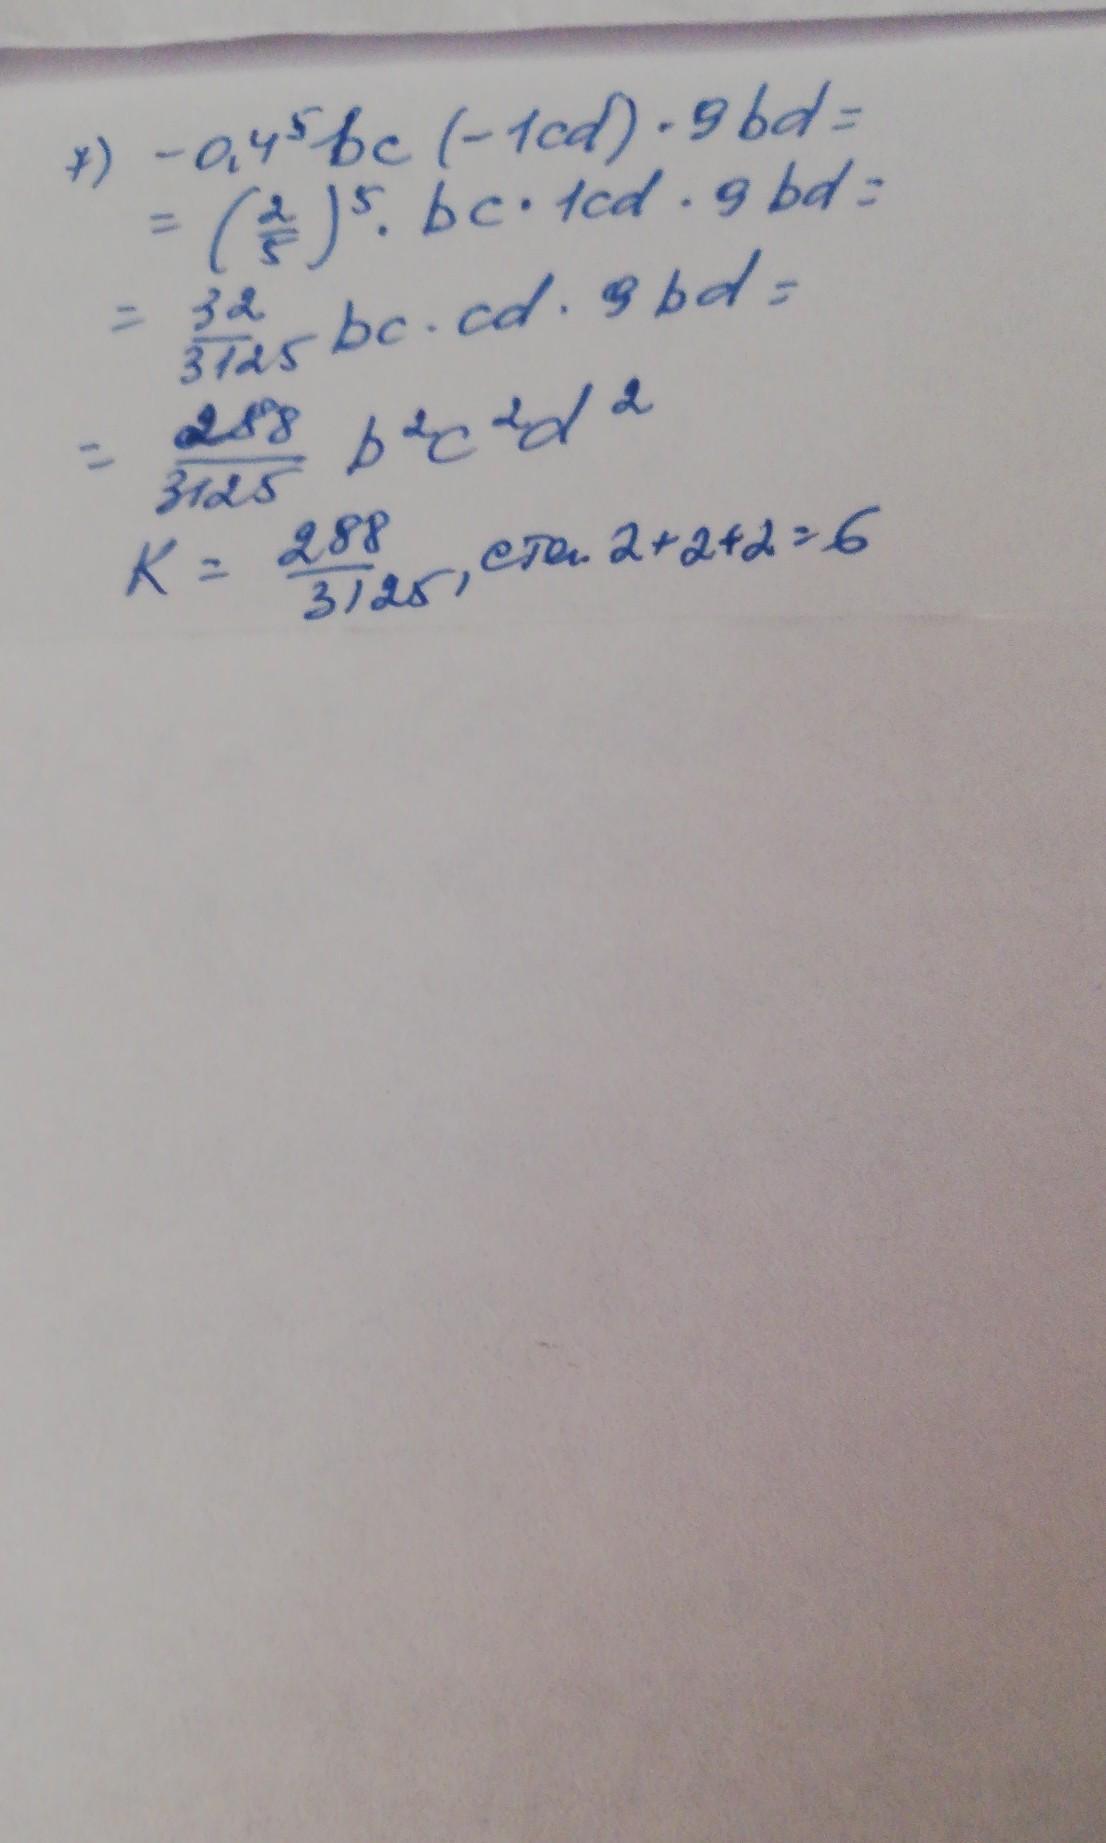 ж) -0,4⁵bc (-1cd) · 9bd =
= (2/5)⁵ · bc · 1cd · 9bd =
= 32/3125 bc · cd · 9bd =
= 288/3125 b²c²d²
K = 288/3125, степ. 2+2+2=6